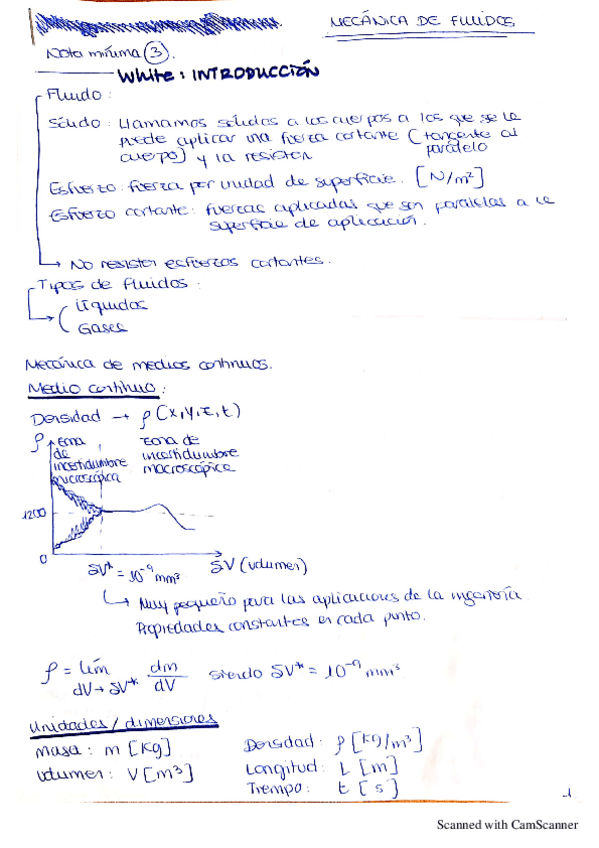 MECÁNICA DE FLUIDOS
Nota mínima 3.
White: INTRODUCCIÓN
Fluido:
Sólido: Llamamos sólidos a los cuerpos a los que se le
puede aplicar una fuerza cortante (tangente al
cuerpo) y la resisten
paralelo
Esfuerzo: fuerza por unidad de superficie. [N/m²]
Esfuerzo cortante: fuerzas aplicadas que son paralelas a la
superficie de aplicación.
→ No resisten esfuerzos cortantes.
Tipos de fluidos:
Líquidos
Gases
Mecánica de medios continuos.
Medio continuo:
Densidad → ρ(x,y,z,t)
ρ
zona de incertidumbre microscópica
zona de incertidumbre macroscópica
1200
0
δV* = 10⁻⁹ mm³
δV (volumen)
↳ Muy pequeño para las aplicaciones de la ingeniería.
Propiedades constantes en cada punto.
ρ = lím dV→δV* dm/dV siendo δV* = 10⁻⁹ mm³
Unidades / dimensiones
masa: m [Kg]
Densidad: ρ [kg/m³]
volumen: V [m³]
Longitud: L [m]
Tiempo: t [s]
-1
Scanned with CamScanner